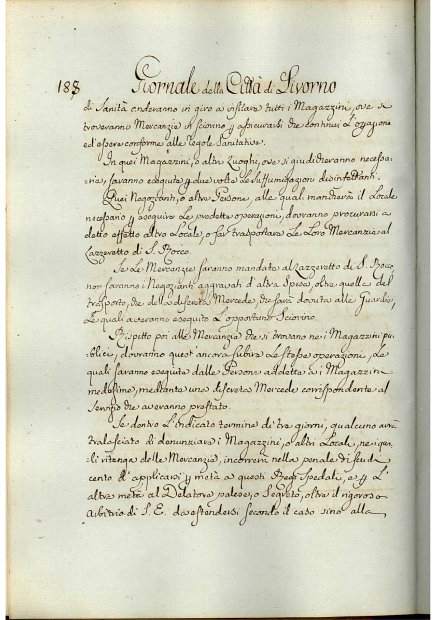 188 Giornale della Città di Livorno
di Sanità anderanno in giro a visitare tutti i Magazzini, ove si
troveranno Mercanzie in sciorino p assicurarsi che continui l'
ed opera conforme alle regole Sanitative.
In quei Magazzini, o altri Luoghi, ove si giudicheranno necessa-
rie, saranno eseguite p due volte Le Suffumicazioni disinfettanti.
Quei Negozianti, o altre Persone, alle quali mancherà il Locale
necessario p eseguire Le predette operazioni, dovranno procurarsi a
detto effetto altro Locale, o far trasportare Le Loro Mercanzie al
Lazzeretto di S. Rocco.
Se Le Mercanzie saranno mandate al Lazzeretto di S. Rocco
non saranno i Negozianti aggravati d'altra Spesa, oltre quella del
trasporto, che della discreta Mercede, che sarà dovuta alle Guardie,
Le quali averanno eseguito L'opportuno Sciorino.
Rispetto poi alle Mercanzie che si trovano nei Magazzini pu-
blici, dovranno quest'ancora subire Le stesse operazioni, Le
quali saranno eseguite dalle Persone addette a i Magazzini
medesimi, mediante una discreta Mercede corrispondente al
Servizio che averanno prestato.
Se dentro L'indicato termine di tre giorni, qualcuno avrà
tralasciato di denunziare i Magazzini, o altri Locali, nei qua-
li ritenga delle Mercanzie, incorrerà nella penale di scudi
cento d'applicarsi p metà a questi Regi Spedali, e p L'
altra metà al Delatore palese, o Segreto, oltre il rigoroso
Arbitrio di S. E. da estendersi secondo il caso sino alla